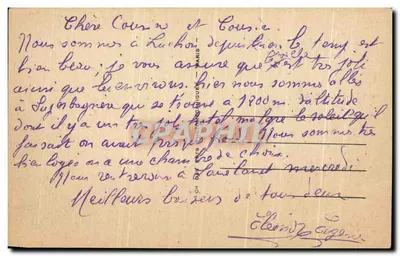 Chère Cousine et Cousin.
Nous sommes à Luchon depuis hier, le temps est
bien beau, je vous assure que c'est très joli
ainsi que les environs. hier nous sommes allés
à Superbagnères qui se trouve à 1800m. d'altitude
dont il y a un très joli hotel malgré le soleil qu'il
faisait on avait presque froid Nous sommes très
bien logés on a une chambre de choix.
Nous rentrerons à Lavelanet mercredi
Meilleurs baisers de tous deux